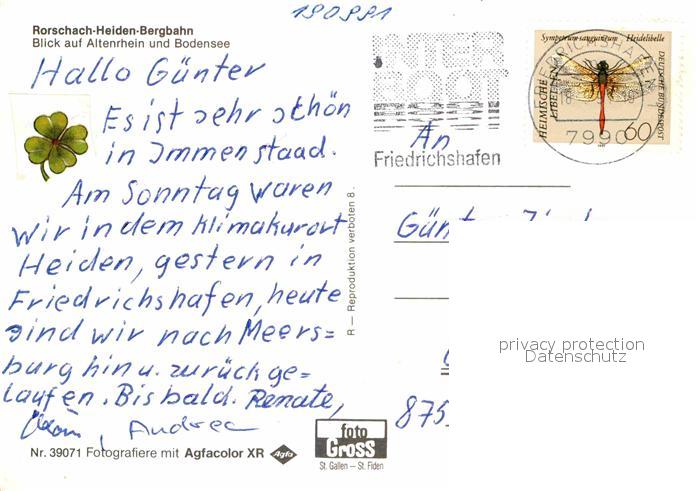 190991
Rorschach-Heiden-Bergbahn
Blick auf Altenrhein und Bodensee
Hallo Günter
Es ist sehr schön
in Immenstaad.
Am Sonntag waren
wir in dem Klimakurort
Heiden, gestern in
Friedrichshafen, heute
sind wir nach Meers=
burg hin u. zurück ge=
laufen. Bis bald. Renate,
, Andrea
Nr. 39071 Fotografiere mit Agfacolor XR Agfa
foto
Gross
St. Gallen — St. Fiden
R — Reproduktion verboten 8.
INTER
BOOT
Friedrichshafen
An
Sympetrum sanguineum Heidelibelle
HEIMISCHE
LIBELLEN
DEUTSCHE BUNDESPOST
60
FRIEDRICHSHAFEN
7990
Gün
875
privacy protection
Datenschutz